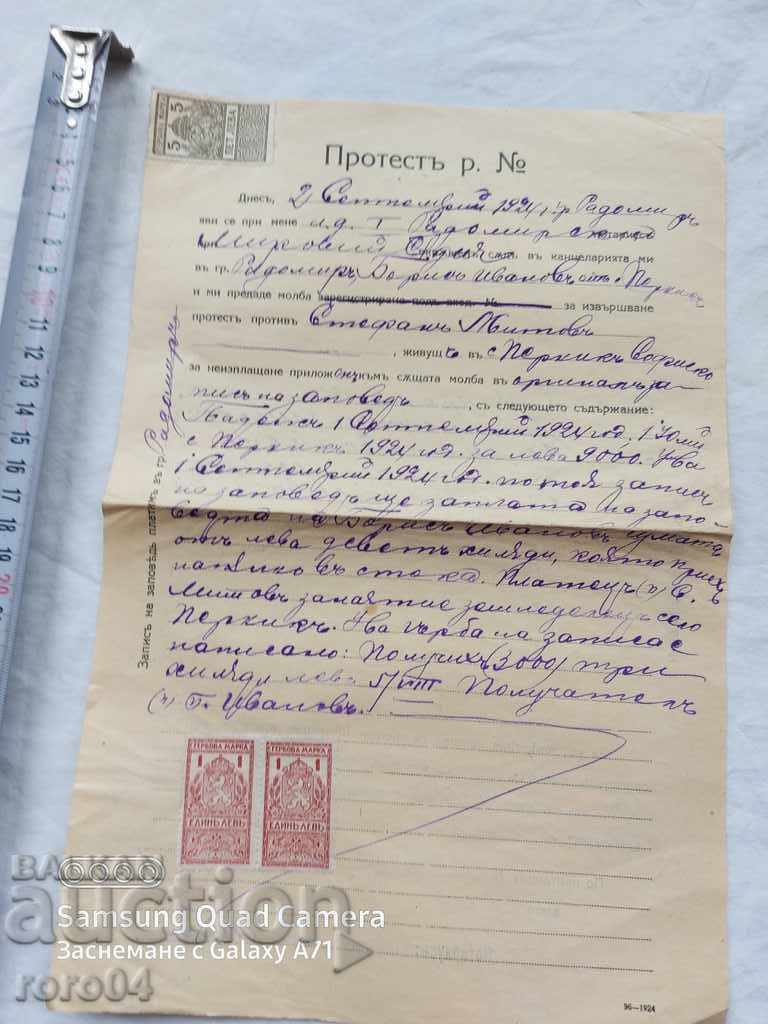 5 5
ПЕТ ЛЕВА
Протестъ р. №
Днесъ, 2 Септемврий 1924 г. гр. Радомиръ
яви се при мене и. д. I Радомирски
при Мировий Съдия въ канцеларията ми
въ гр. Радомиръ, Борисъ Ивановъ отъ с. Перникъ
и ми предаде молба зарегистрирана подъ вход. № за извършване
протестъ противъ Стефанъ Митовъ
, живущъ въ с. Перникъ Софийско
за неизплащане приложения къмъ сѫщата молба въ оригиналъ за-
пись на заповедъ, съ следующето съдържание:
1 Септемврий 1924 год. 1 Юлий
с. Перникъ 1924 год. за лева 9000. На
1 Септемврий 1924 год. по тоя записъ
на заповедъ ще заплатя на запо-
ведта на Борисъ Ивановъ сумата
отъ лева деветь хиляди, която приехъ
напълно въ стока. Платецъ (п) С.
Митовъ занятие земледелецъ село
Перникъ. На гърба на записа е
написано: Получихъ (3000) три
хиляди лева 5/VIII Получателъ
(п) Б. Ивановъ.
Записъ на заповѣдь платимъ въ гр. Радомиръ
ГЕРБОВА МАРКА ГЕРБОВА МАРКА
1 1 1 1
ЕДИНЪ ЛЕВЪ ЕДИНЪ ЛЕВЪ
БАЛКАН
auction
Samsung Quad Camera
Заснемане с Galaxy A71
roro04
96—1924